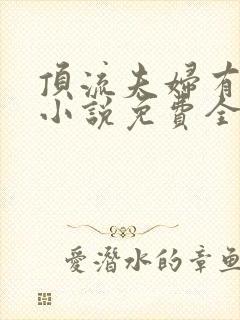 頂流夫婦有
小說免費全
愛潛水的章魚